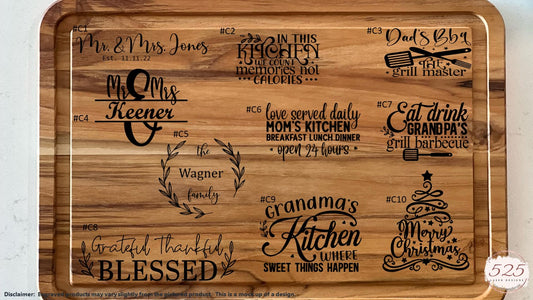 #C1
Mr. & Mrs. Jones
Est. 11.11.22
#C2
IN THIS
KITCHEN
WE COUNT
memories not
CALORIES
#C3
Dad's Bbq
THE
grill master
#C4
Mr & Mrs
Keener
#C5
the
Wagner
family
#C6
love served daily
MOM'S KITCHEN
BREAKFAST LUNCH DINNER
open 24 hours
#C7
Eat drink
GRANDPA'S
grill barbecue
#C8
Grateful Thankful
BLESSED
#C9
Grandma's
Kitchen
WHERE
SWEET THINGS HAPPEN
#C10
Merry
Christmas
525
Disclaimer: Engraved products may vary slightly from the pictured product. This is a mockup of a design.